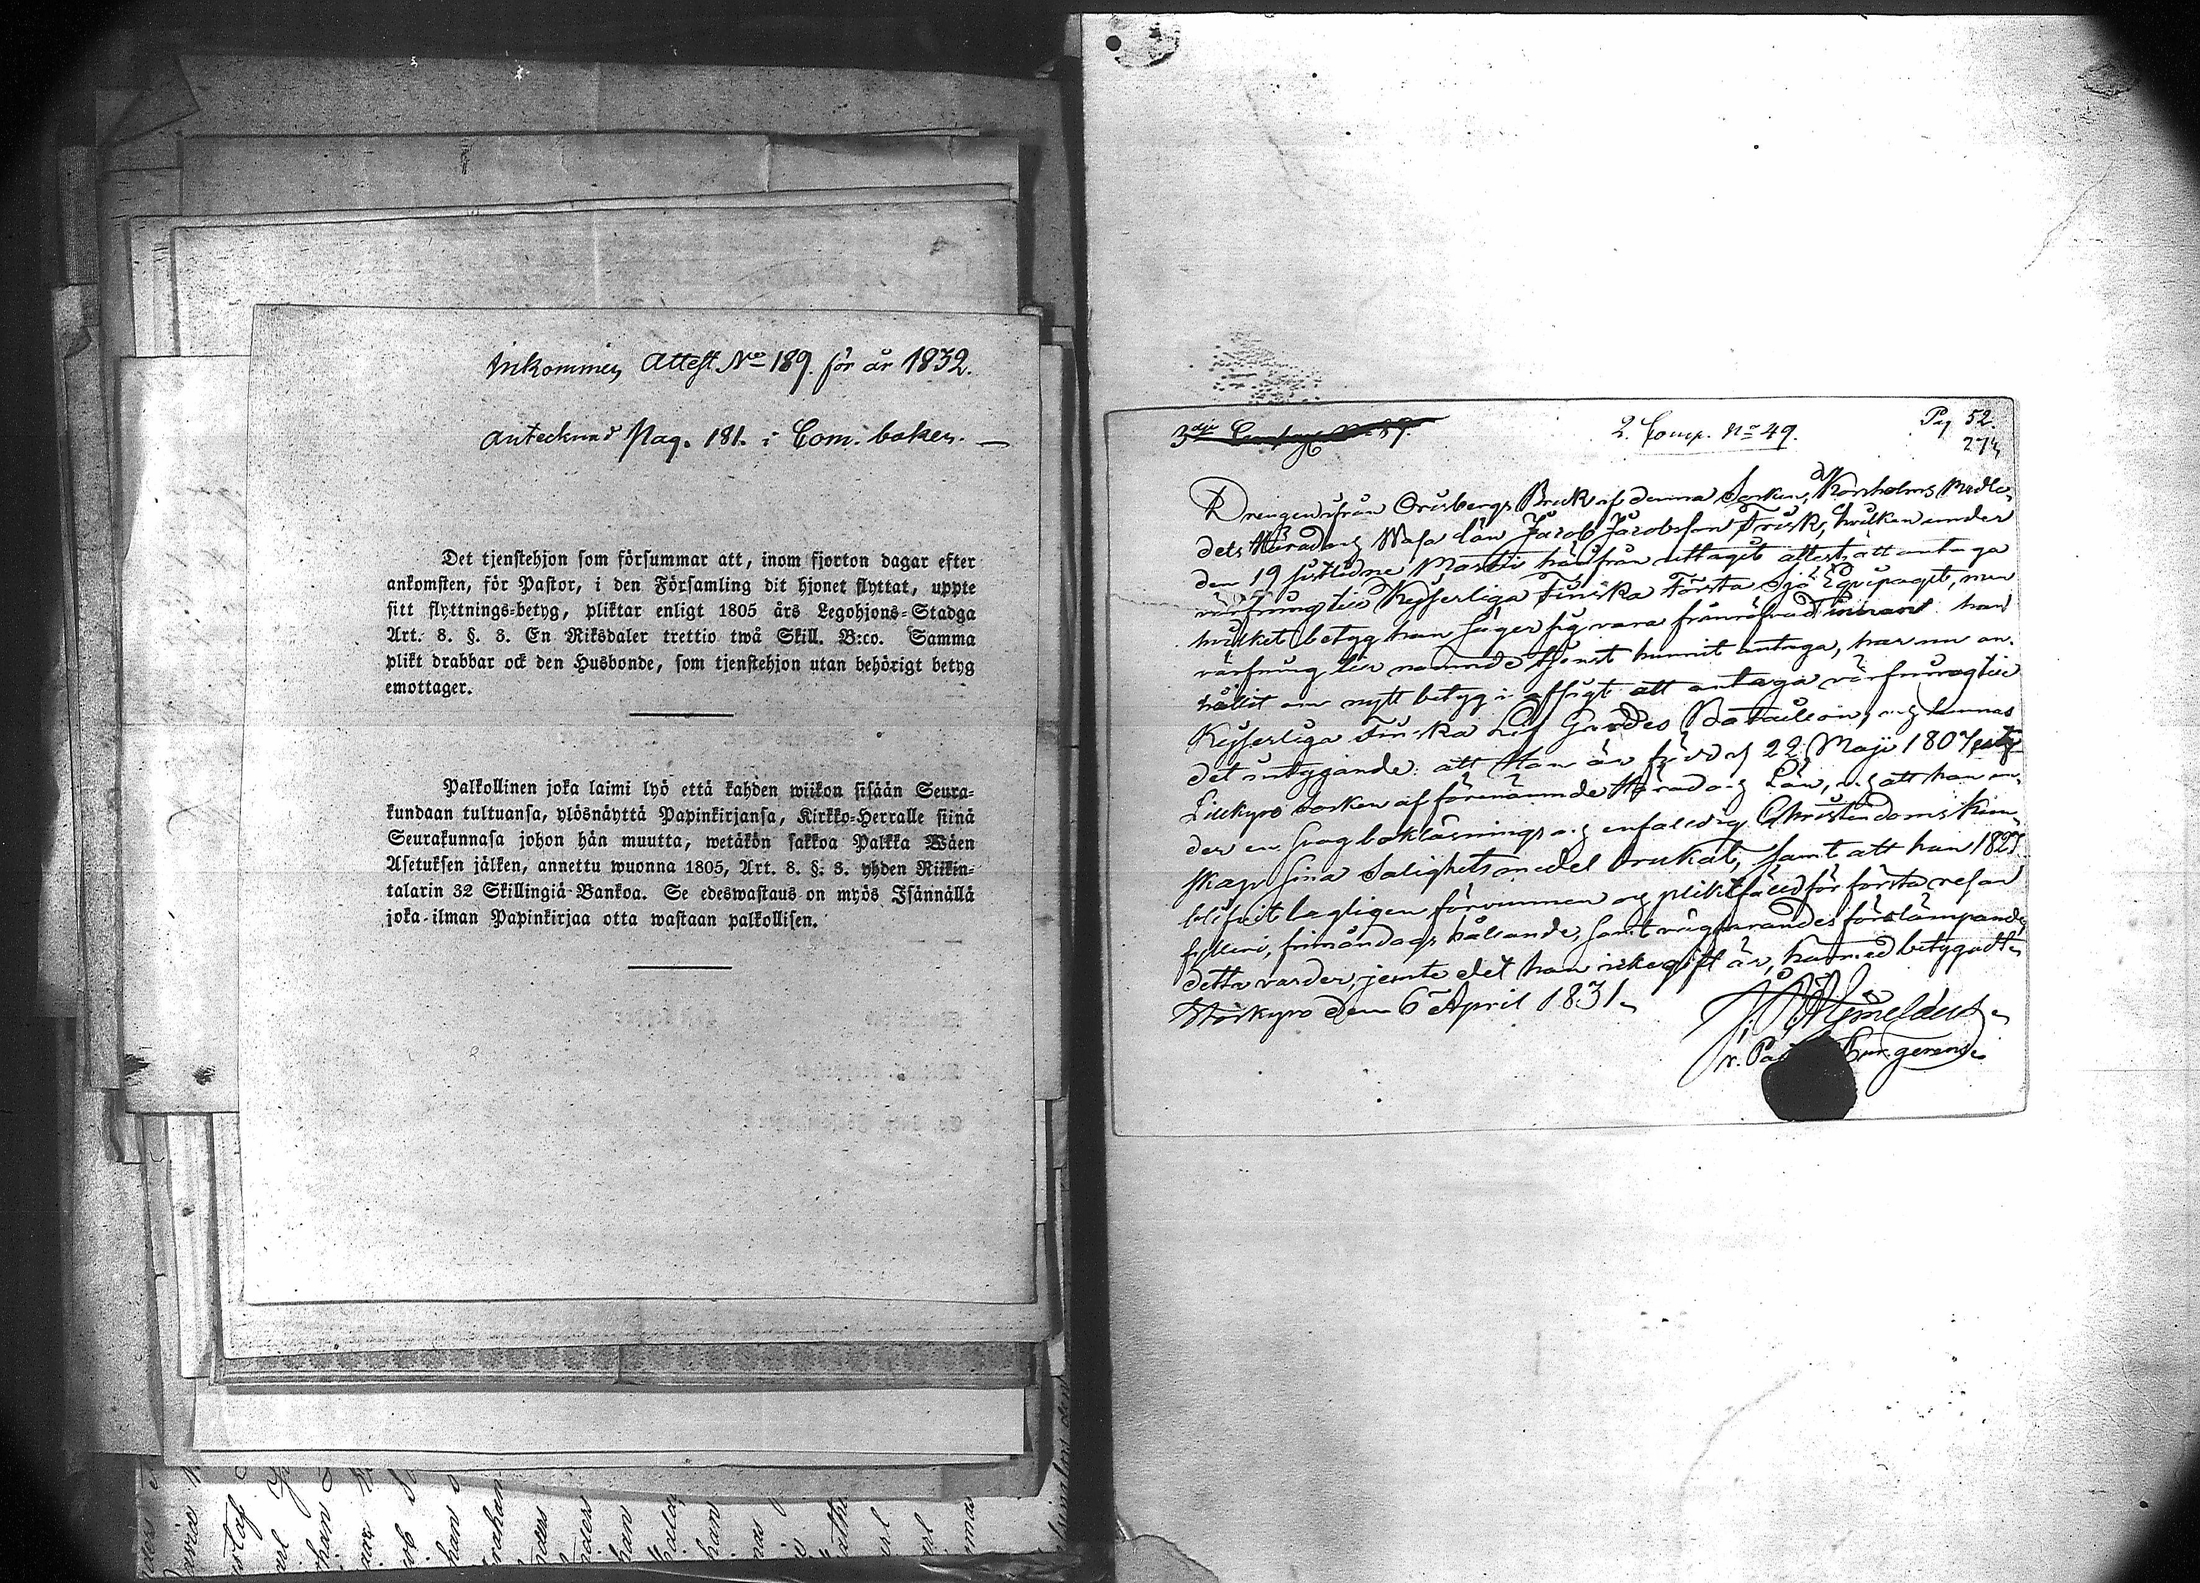 Inkommen Attest No 189. för år 1832.
Antecknad Pag. 181. i Com. boken. —
Det tjenstehjon som försummar att, inom fjorton dagar efter
ankomsten, för Pastor, i den Församling dit hjonet flyttat, uppte
sitt flyttnings-betyg, pliktar enligt 1805 års Legohjons-Stadga
Art. 8. §. 3. En Riksdaler trettio twå Skill. B:co. Samma
plikt drabbar ock den Husbonde, som tjenstehjon utan behörigt betyg
emottager.
Palkollinen joka laimi lyö että kahden wiikon sisään Seura-
kundaan tultuansa, ylösnäyttä Papinkirjansa, Kirkko-Herralle siinä
Seurakunnasa johon hän muutta, wetäkön sakkoa Palkka Wäen
Asetuksen jälken, annettu wuonna 1805, Art. 8. §. 3. yhden Riikin-
talarin 32 Skillingiä Bankoa. Se edeswastaus on myös Isännällä
joka ilman Papinkirjaa otta wastaan palkollisen.
2. Comp. No 49.
Pag 52.
274
Drengen ifrån Orisbergs Bruk af denna Socken, Korsholms Medle-
dets Härad og Wasa län Jacob Jacobsson Frisk, hvilken under
den 19 sistledne Martii härifrån uttagit attest att antaga
värfning till Kejserliga Finska Första Sjö Equipaget, men
hvilket betyg han säger sig vara frånröfvad innan han
värfning till nämnde tjenst hunnit antaga, har nu an-
hållit om nytt betyg i afsigt att antaga värfning till
Kejserliga Finska Lif Gardes Bataillon, og lemnas
det intygande: att Han är född d 22 Maji 1807 uti
Lillkyro socken af förenämnde Härad og Län, og att han un-
der en svag bokläsnings og enfaldig Christendoms kun-
skap sina Salighetsmedel brukat, samt att han 1827
blifvit lagligen förvunnen og pliktfälld för första resan
fylleri, frimåndags hållande, samt vägfarandes förolämpande,
detta varder, jemte det han icke gift är, härmed betygadt.
Storkyro den 6 April 1831.